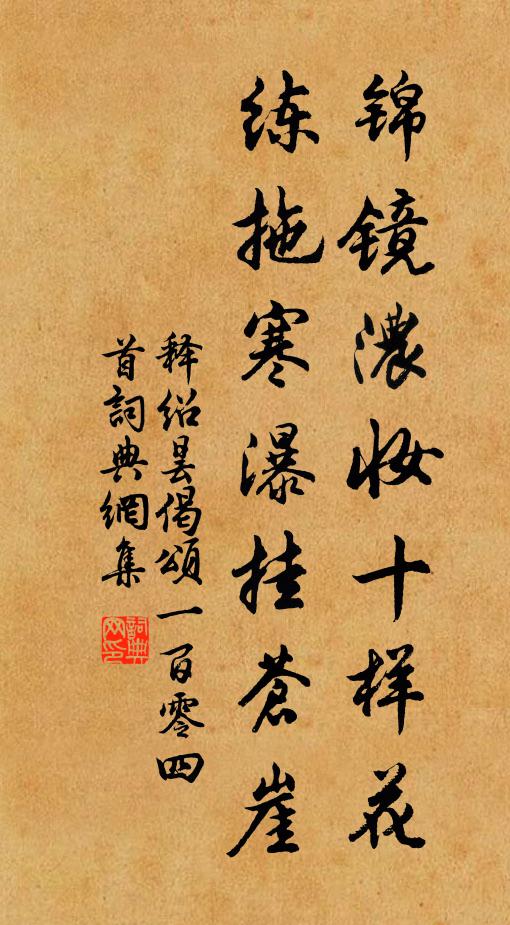 锦镜濃妆十样花
练拖寒瀑挂苍崖
释绍昙偈頌一百零四
首詞典網集
詞典
网印